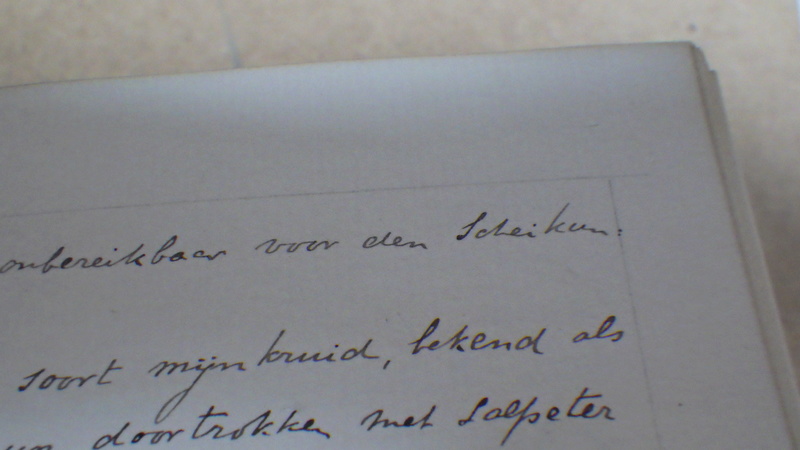 onbereikbaar voor den Scheikun:
soort mijnkruid, bekend als
doortrokken met Salpeter